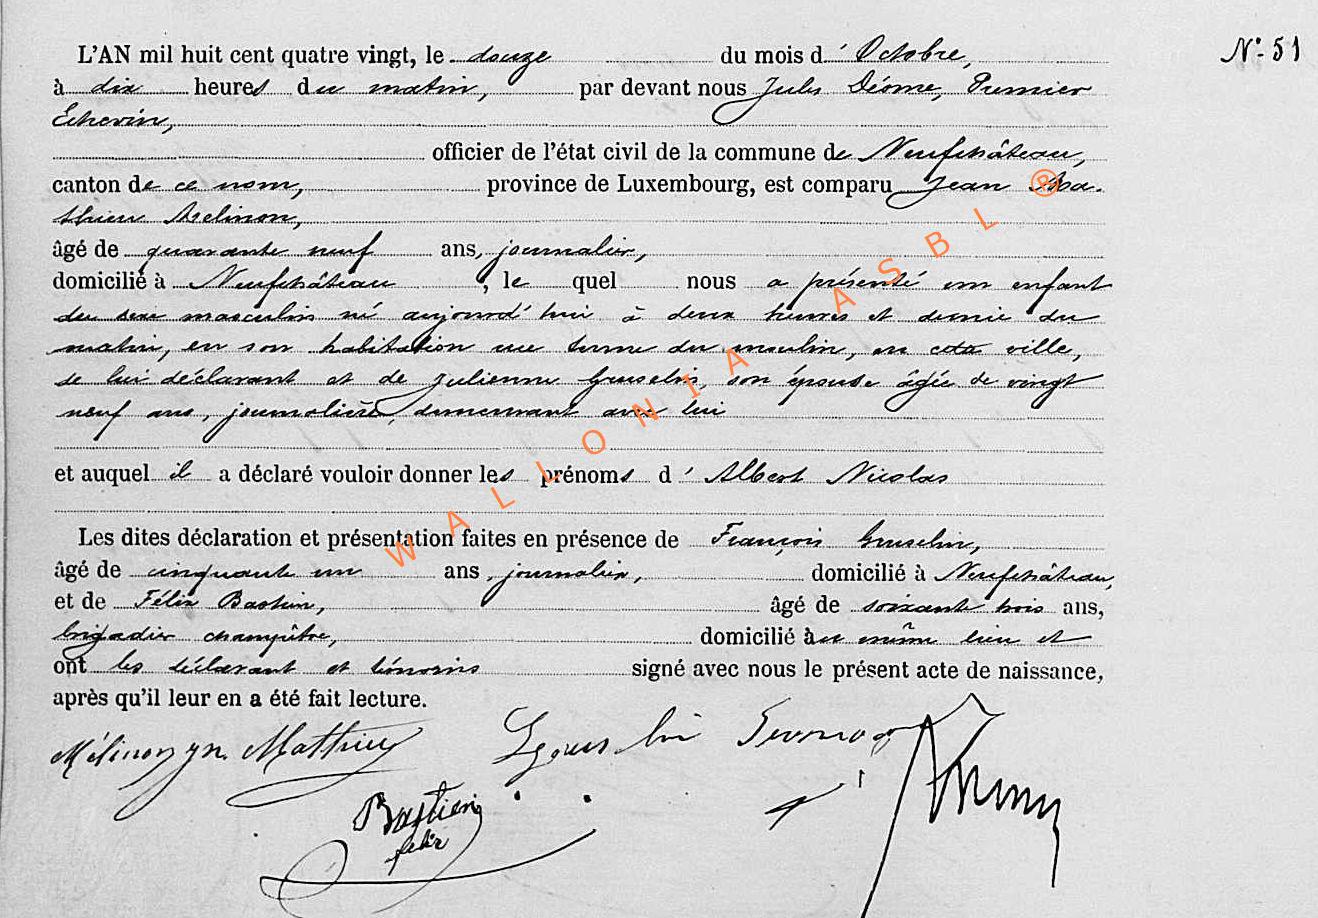 N° 51
L'AN mil huit cent quatre vingt, le douze du mois d' Octobre,
à dix heures du matin, par devant nous Jules Déome, Premier
Echevin,
officier de l'état civil de la commune de Neufchâteau,
canton de ce nom, province de Luxembourg, est comparu Jean Ma-
thieu Melinon,
âgé de quarante neuf ans, journalier,
domicilié à Neufchâteau, le quel nous a présenté un enfant
du sexe masculin né aujourd'hui à deux heures et demie du
matin, en son habitation rue terme du moulin, en cette ville,
de lui déclarant et de Julienne Gruselin, son épouse âgée de vingt
neuf ans, journalière, demeurant avec lui
et auquel il a déclaré vouloir donner les prénoms d' Albert Nicolas
Les dites déclaration et présentation faites en présence de François Gruselin,
âgé de cinquante un ans, journalier, domicilié à Neufchâteau,
et de Félix Bastin, âgé de soixante trois ans,
brigadier champêtre, domicilié au même lieu et
ont les déclarant et témoins signé avec nous le présent acte de naissance,
après qu'il leur en a été fait lecture.
Mélinon jn. Mathieu
Bastien
felix
WALLONIA ASBL ®